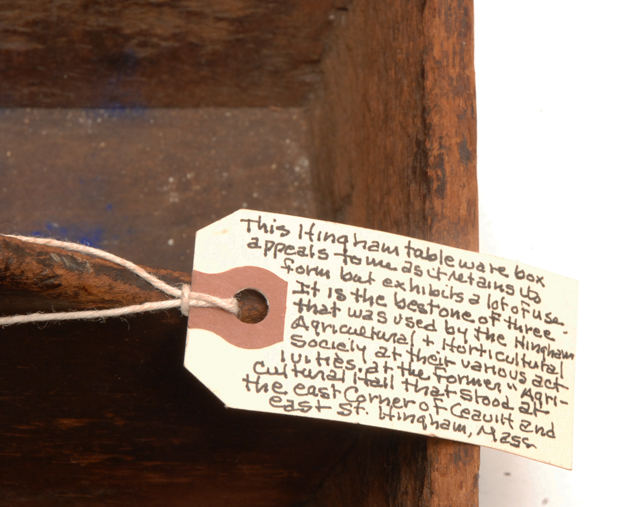 This Hingham tableware box
appeals to me as it retains its
form but exhibits a lot of use.
It is the best one of three
that was used by the Hingham
Agricultural + Horticultural
Society at their various act
ivities. at the former "Agri-
cultural Hall that stood at
the east Corner of Leavitt and
east St. Hingham, Mass